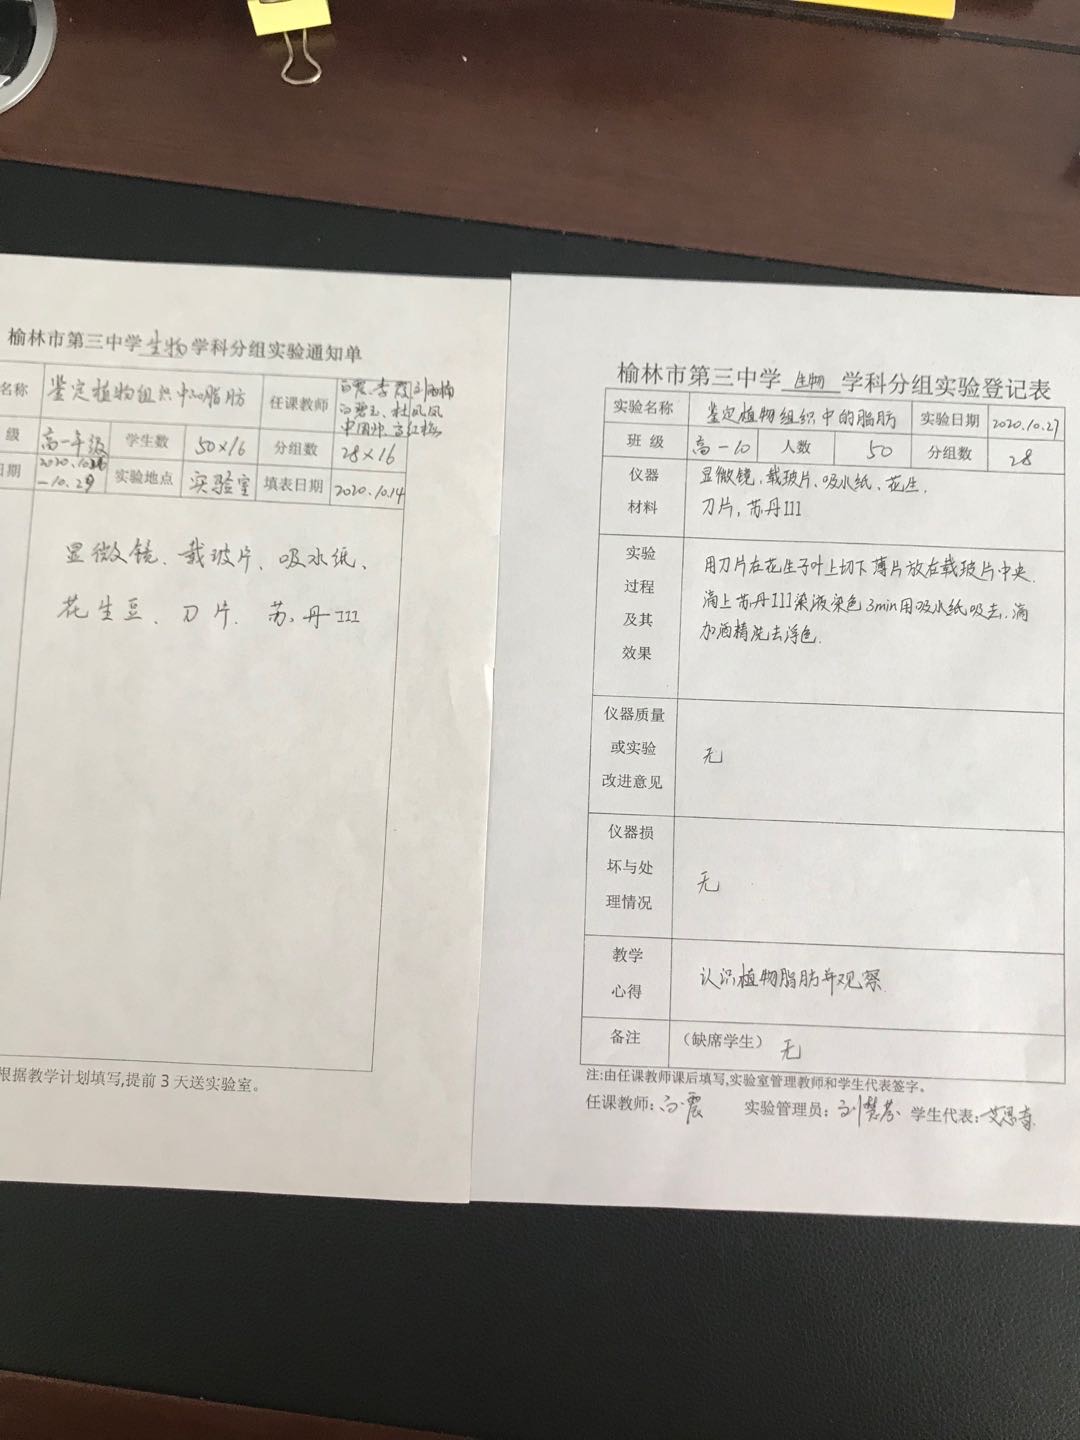 榆林市第三中学生物学科分组实验通知单
名称 鉴定植物组织中的脂肪 任课教师
级 高一年级 学生数 50×16 分组数 28×16
日期 -10.29 实验地点 实验室 填表日期 2020.10.14
显微镜、载玻片、吸水纸、
花生豆、刀片、苏丹III
根据教学计划填写,提前3天送实验室。
榆林市第三中学 生物 学科分组实验登记表
实验名称 鉴定植物组织中的脂肪 实验日期 2020.10.27
班 级 高一-10 人数 50 分组数 28
仪器
材料
显微镜、载玻片、吸水纸、花生,
刀片,苏丹III
实验
过程
及其
效果
用刀片在花生子叶上切下薄片放在载玻片中央.
滴上苏丹III染液染色3min用吸水纸吸去,滴
加酒精洗去浮色.
仪器质量
或实验
改进意见
无
仪器损
坏与处
理情况
无
教学
心得
认识植物脂肪并观察.
备注 (缺席学生) 无
注:由任课教师课后填写,实验室管理教师和学生代表签字。
任课教师: 白震 实验管理员: 刘慧芬 学生代表: